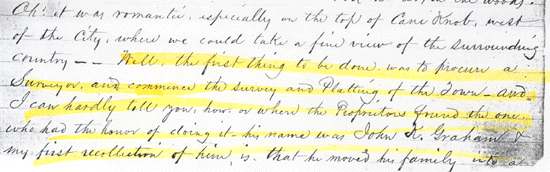 Oh! it was romantic, especially on the top of Cane Knob, west
of the City, where we could take a fine view of the surrounding
country — — Well, the first thing to be done, was to procure a
Surveyor, and commence the survey and Platting of the Town — and
I can hardly tell you, how, or where the Proprietors found the one
who had the honor of doing it — his name was John K. Graham &
my first recollection of him, is, that he moved his family into a